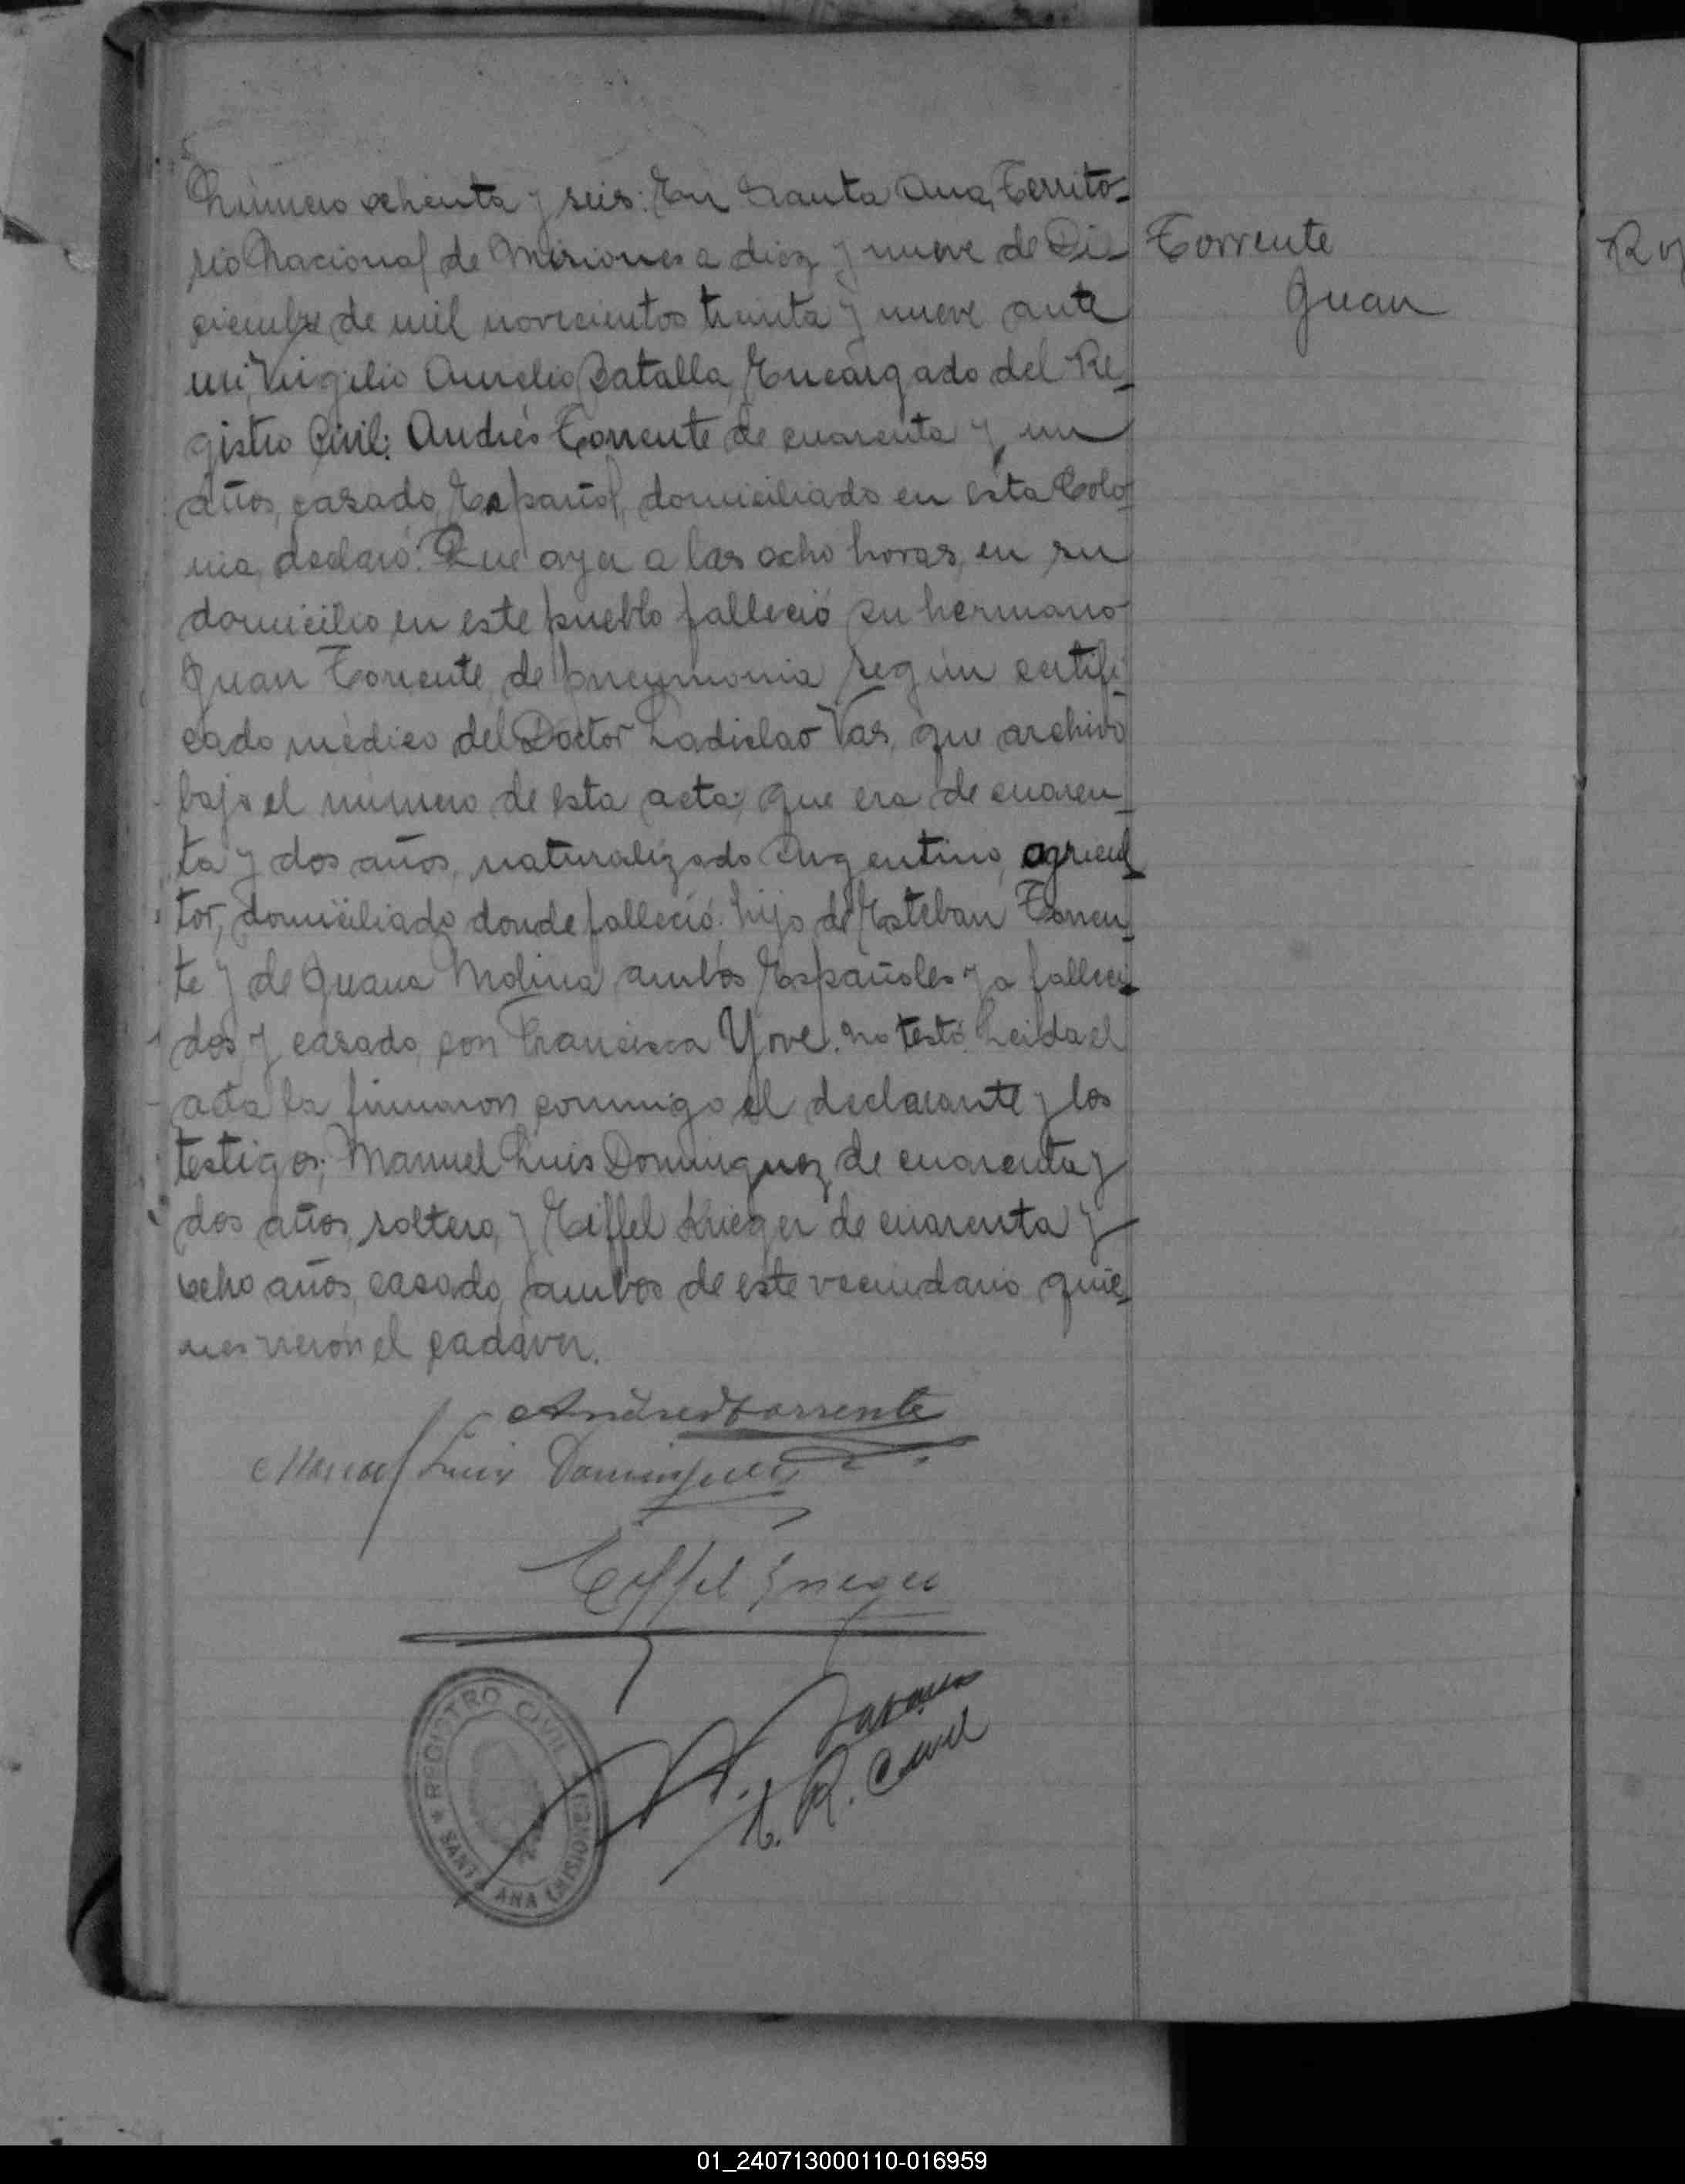 Número ochenta y seis: En Santa Ana, Territo-
rio Nacional de Misiones a diez y nueve de Di-
ciembre de mil novecientos treinta y nueve ante
mi, Virgilio Aurelio Batalla, Encargado del Re-
gistro Civil: Andrés Torrente de cuarenta y un
años, casado, Español, domiciliado en esta Colo-
nia, declaró: Que ayer a las ocho horas, en su
domicilio en este pueblo falleció su hermano
Juan Torrente, de pneumonia según certifi-
cado médico del Doctor Ladislao Vas, que archivo
bajo el número de esta acta; que era de cuaren-
ta y dos años, naturalizado Argentino, agricul-
tor, domiciliado donde falleció: hijo de Esteban Torren-
te y de Juana Molina ambos Españoles ya falleci-
dos, y casado, con Francisca Yove. No testó. Leida el
acta la firmaron conmigo el declarante y los
testigos; Manuel Luis Dominguez, de cuarenta y
dos años, soltero, y Eiffel Krieger de cuarenta y
ocho años, casado, ambos de este vecindario quie-
nes vieron el cadáver.
Torrente
Juan
Andres Torrente
Manuel Luis Dominguez
Eiffel Krieger
E. R. Civil
REGISTRO CIVIL
SANTA ANA (MISIONES)
01_240713000110-016959